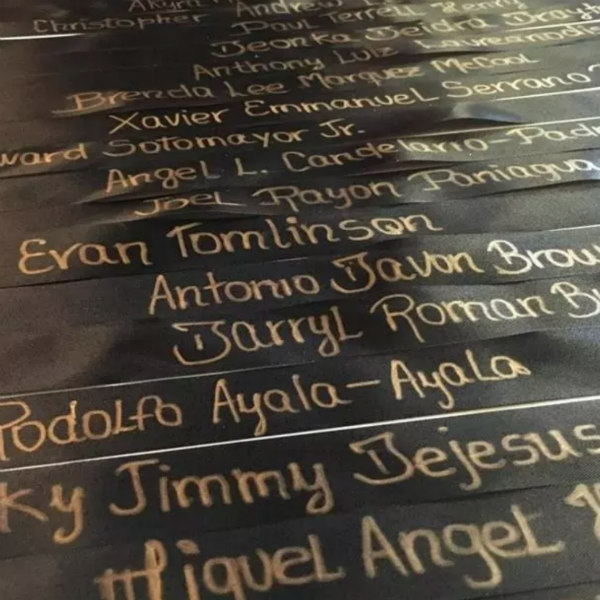 Akyra
Andrew
Christopher
Paul Terrell Henry
Deonka Deidra Drayton
Anthony Luiz Laureanodi
Brenda Lee Marquez McCool
Xavier Emmanuel Serrano
ward Sotomayor Jr.
Angel L. Candelario-Padr
Joel Rayon Paniagua
Evan Tomlinson
Antonio Davon Brow
Darryl Roman Bu
Rodolfo Ayala-Ayala
ky Jimmy Dejesus
Miguel Angel